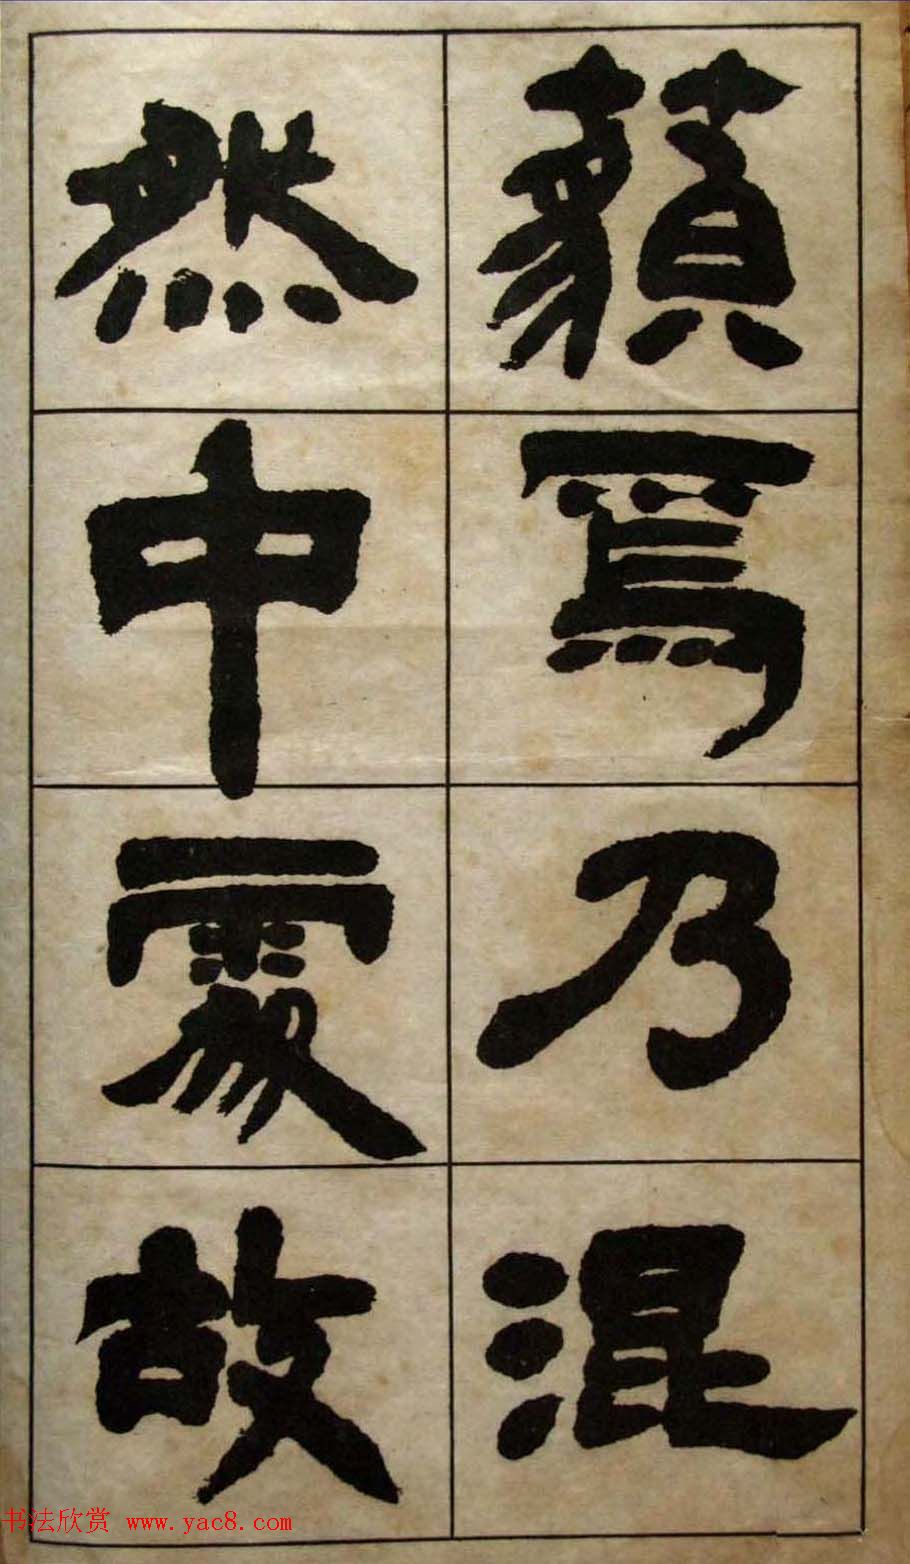 藐焉乃混
然中處故
书法欣赏 www.yac8.com